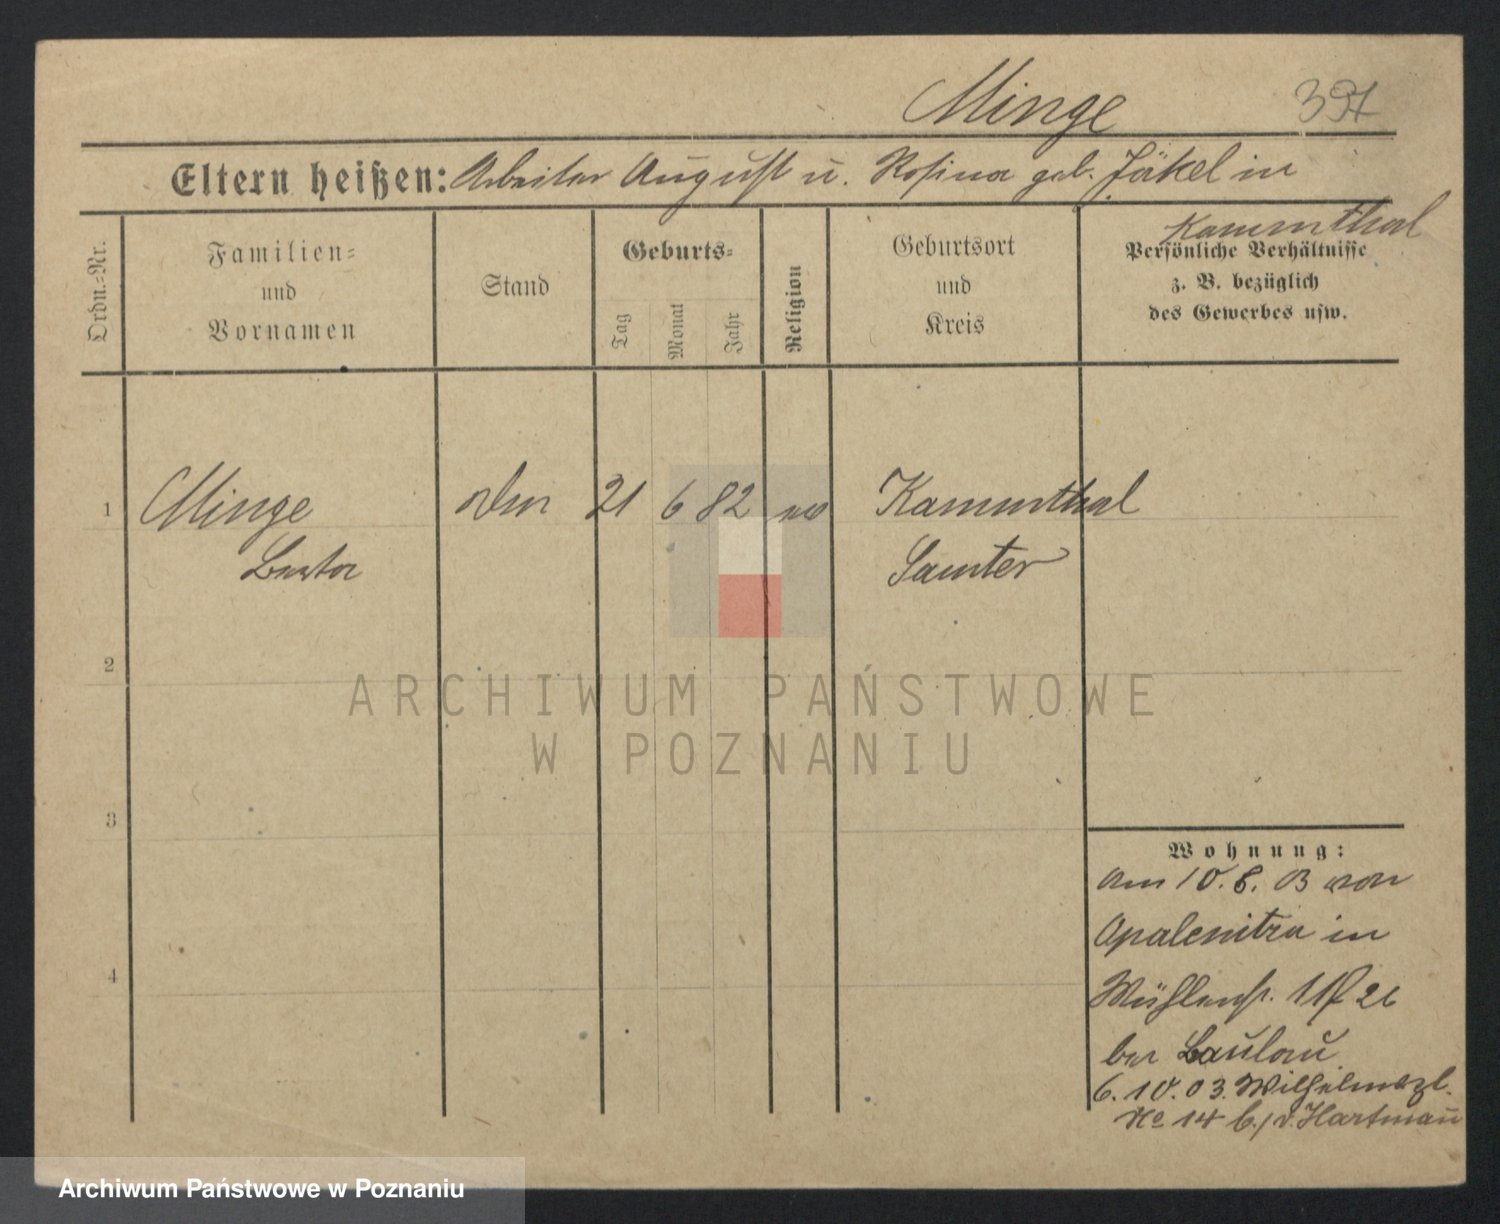 Minge 397
Eltern heißen: Arbeiter August u. Rosina geb. Jäkel in
Kammthal
Ordn.-Nr.
Familien-
und
Vornamen
Stand
Geburts-
Tag
Monat
Jahr
Religion
Geburtsort
und
Kreis
Persönliche Verhältnisse
z. B. bezüglich
des Gewerbes usw.
1 Minge 21 6 82 ev Kammthal
Berta Samter
2
3
4
Wohnung:
Am 10. 8. 03 von
Opalenitza in
Mühlenstr. 26
bei
6. 10. 03. Wilhelmspl.
No 14 b./ v. Hartmann
ARCHIWUM PAŃSTWOWE
W POZNANIU
Archiwum Państwowe w Poznaniu